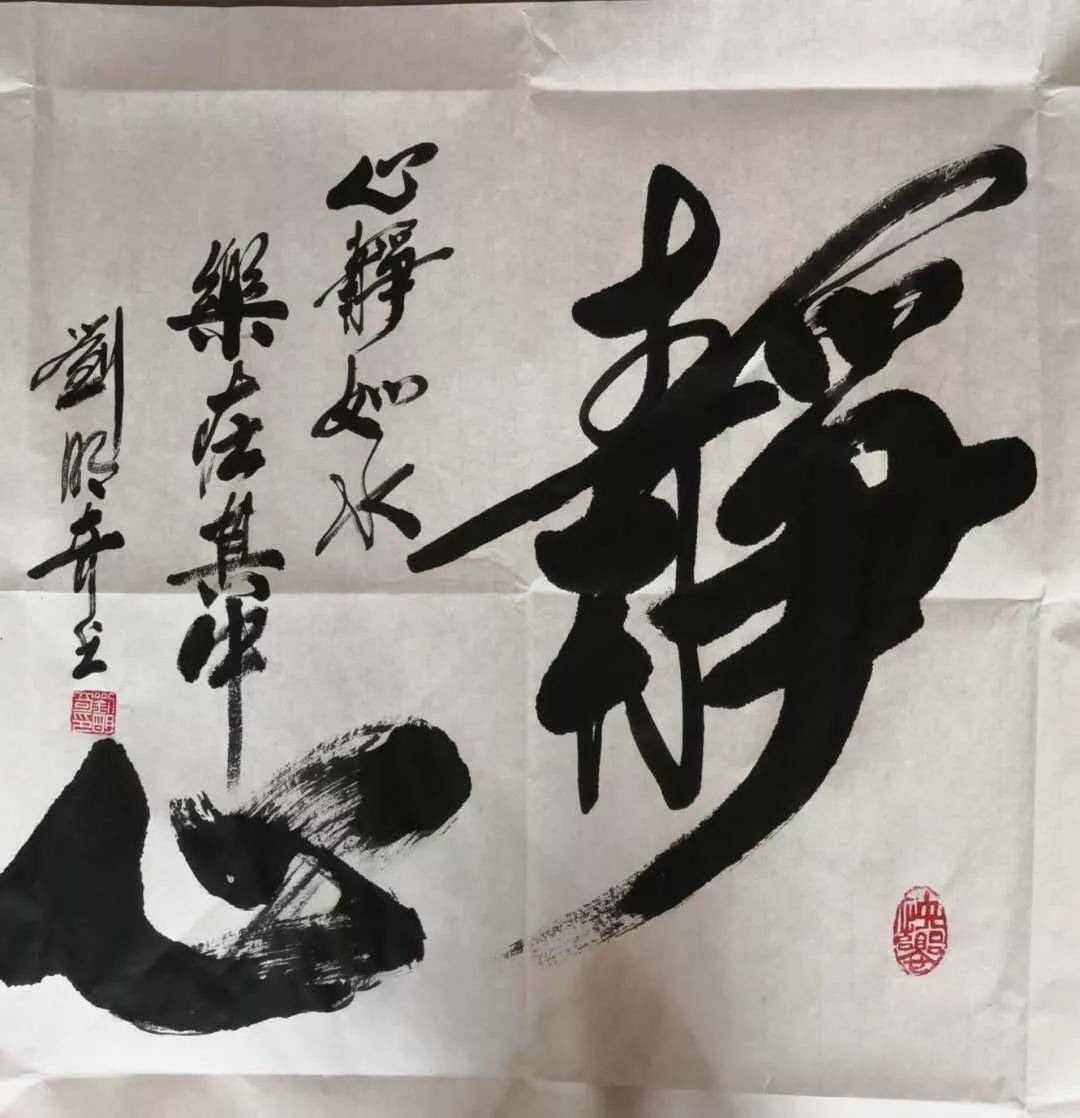 靜
心
心靜如水
樂在其中
劉明奇书